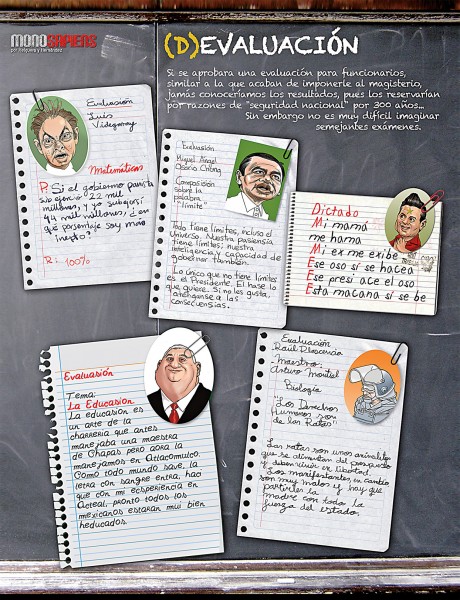 MONOSAPIENS
por Helguera y Hernández
(D)EVALUACIÓN
Si se aprobara una evaluación para funcionarios,
similar a la que acaban de imponerle al magisterio,
jamás conoceríamos los resultados, pues los reservarían
por razones de "seguridad nacional" por 300 años...
Sin embargo no es muy difícil imaginar
semejantes exámenes.
Evaluasión
Luis
Videgaray
Matemáticas
P: Si el gobierno
sub ejerció 22 mil
millones, y yo subejersí
44 mil millones, ¿en
qué porsentaje soy más
inepto?
R: 100%
Evaluasión
Miguel Ángel
Osorio Chong
Composisión
sobre la
palabra
"límite"
Todo tiene límites, incluso el
Universo. Nuestra pasiensia
tiene límites; nuestra
inteligencia y capacidad de
gobernar también.
Lo único que no tiene límites
es el Presidente. Él hase lo
que quiere. Si no les gusta,
aténganse a las
consecuensias.
Dictado
Mi mamá
me hama
Mi ex me exibe
Ese oso sí se hacea
Ese presi ace el oso
Esta macana sí se be
Evaluasión
Tema:
La Educasion
La educasion es
un arte de la
charreria que antes
manejaba una maestra
de Chapas pero aora la
manejamos en Atlacomulco.
Como todo mundo save, la
letra con sangre entra, haci
que con mi ecsperiencia en
Acteal, pronto todos los
mexicanos estarán mui bien
heducados.
Evaluación
Raúl Plascencia
Maestro:
Arturo Montiel
Biología
"Los Derechos
Humanos son
de las Ratas"
Las ratas son unos animalitos
que se alimentan del presupuesto
y deben vivir en libertad.
Los manifestantes en cambio
son muy malos y hay que
partirles la
madre con toda la
fuerza del estado.